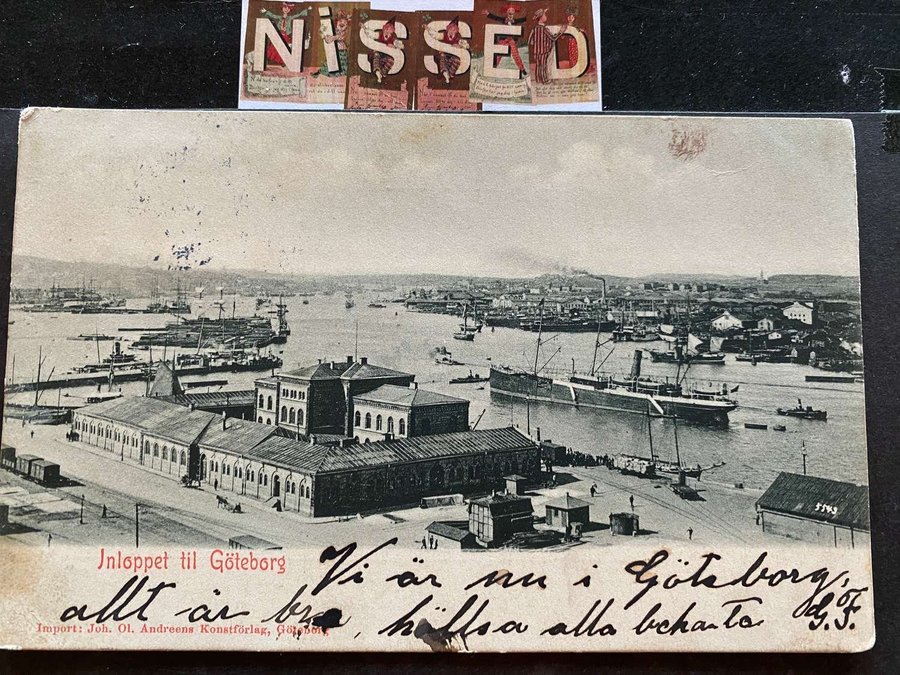 NISSED
5543
Inloppet til Göteborg
Vi är nu i Göteborg,
allt är bra, hälsa alla bekanta
G. F.
Import: Joh. Ol. Andreens Konstförlag, Göteborg